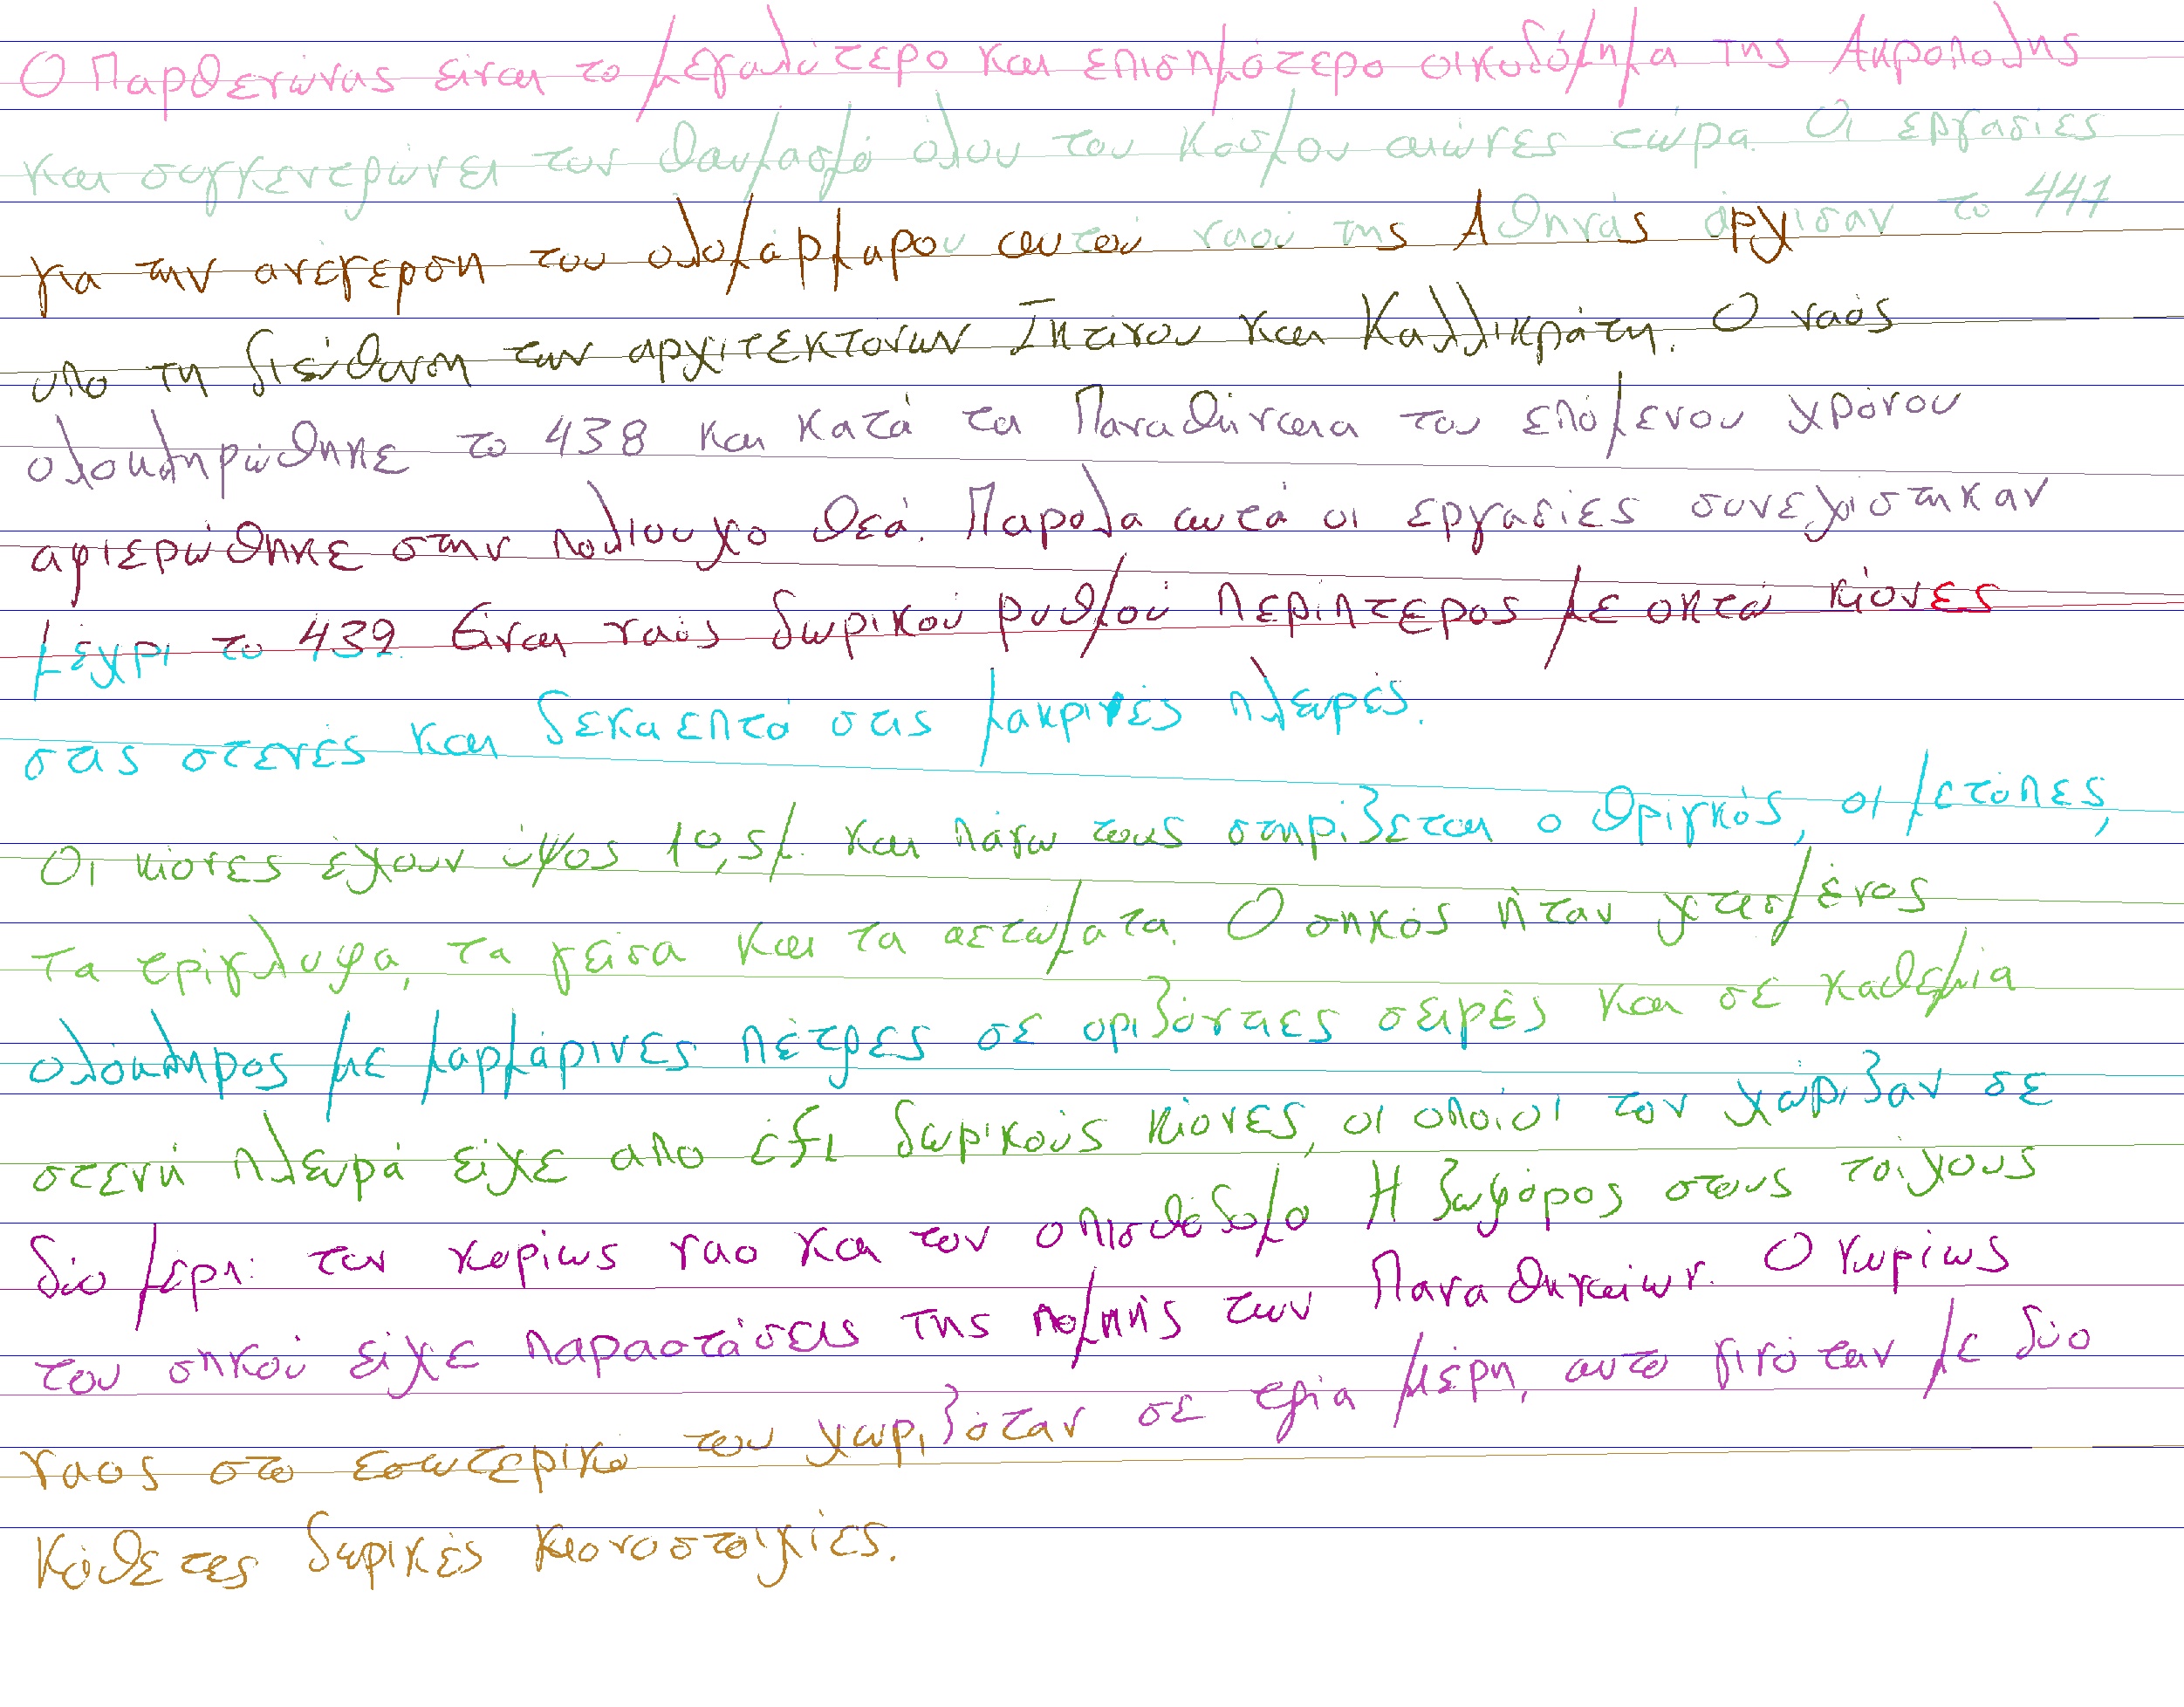 Ο Παρθενώνας είναι το μεγαλύτερο και επισημότερο οικοδόμημα της Ακροπολης
και συγκεντρώνει τον θαυμασμό όλου του κόσμου αιώνες τώρα. Οι εργασίες
για την ανέγερση του ολομάρμαρου αυτού ναού της Αθηνάς άρχισαν το 447
υπο τη διεύθυνση των αρχιτεκτόνων Ικτίνου και Καλλικράτη. Ο ναός
ολοκληρώθηκε το 438 και κατά τα Παναθήναια του επόμενου χρόνου
αφιερώθηκε στην πολιουχο θεά. Παρολα αυτά οι εργασίες συνεχίστηκαν
μέχρι το 432. Είναι ναός δωρικού ρυθμού περίπτερος με οκτώ κίονες
στις στενές και δεκαεπτά στις μακρινές πλευρές.
Οι κίονες έχουν ύψος 10,5μ. και πάνω τους στηρίζεται ο θριγκός, οι μετόπες,
τα τρίγλυφα, τα γείσα και τα αετώματα. Ο σηκός ήταν χτισμένος
ολόκληρος με μαρμάρινες πέτρες σε οριζόντιες σειρές και σε καθεμία
στενή πλευρά είχε απο έξι δωρικούς κίονες, οι οποίοι τον χώριζαν σε
δύο μέρη: τον κυρίως ναο και τον οπισθόδομο Η ζωφόρος στους τοίχους
του σηκού είχε παραστάσεις της πομπής των Παναθηναίων. Ο κυρίως
ναος στο εσωτερικο του χωριζόταν σε τρία μέρη, αυτο γινόταν με δύο
κάθετες δωρικές κιονοστοιχίες.